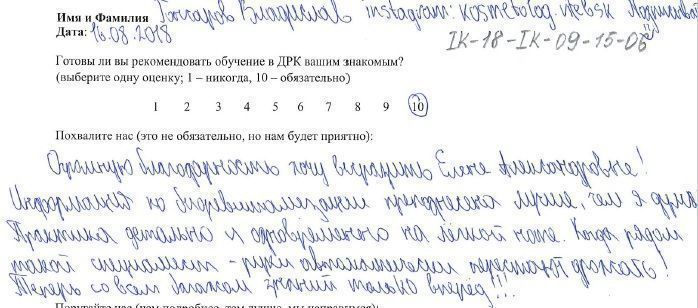 Имя и Фамилия Гончаров Владислав instagram: kosmetolog.vitebsk
Дата: 16.08.2018 IK-18-IK-09-15-06
Готовы ли вы рекомендовать обучение в ДРК вашим знакомым?
(выберите одну оценку; 1 – никогда, 10 – обязательно)
1 2 3 4 5 6 7 8 9 10
Похвалите нас (это не обязательно, но нам будет приятно):
Огромную благодарность хочу выразить Елене Александровне!
Информация по биоревитализации преподнесена лучше, чем я думал
Практика детальна и одновременно на лёгкой ноте. Когда рядом
такой специалист - руки автоматически перестают дрожать!
Теперь со всем багажом знаний только вперёд!!!